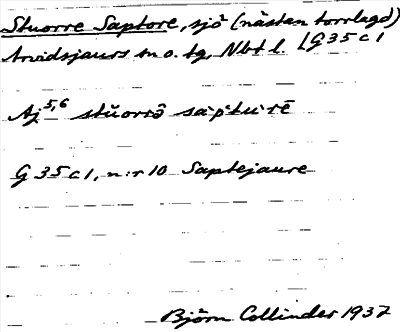 Stuorre Saptore, sjö (nästan torrlagd)
Arvidsjaurs sn o. tg, Nbt l. [G 35 c 1
Aj 5,6 stŭorrō sàpture
G 35 c 1, n:r 10 Saptejaure
Björn Collinder 1937